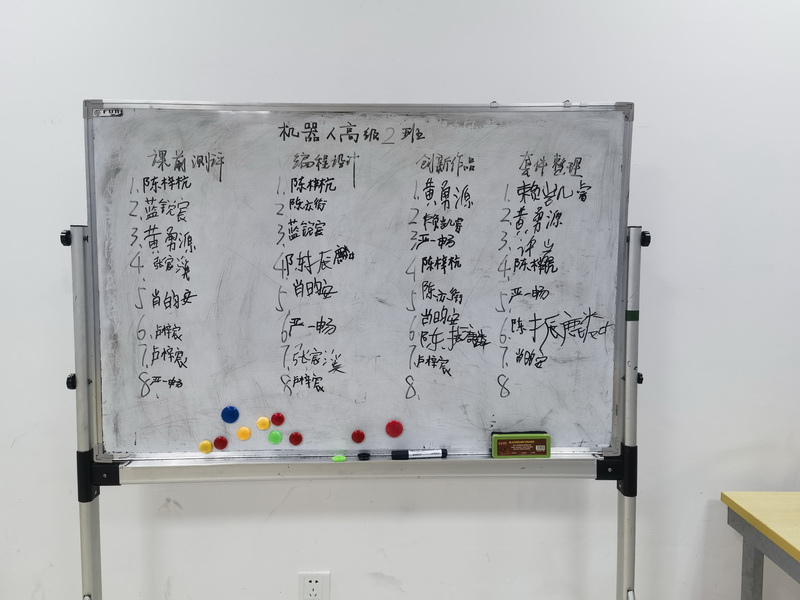 机器人高级2班
课前测评
1.陈梓杭
2.蓝锐宸
3.黄勇源
4.张家溪
5.肖昀安
6.卢梓宸
7.卢梓宸
8.严一畅
编程设计
1.陈梓杭
2.陈亦衔
3.蓝锐宸
4.陈振麟
5.肖昀安
6.严一畅
7.张家溪
8.卢梓宸
创新作品
1.黄勇源
2.赖凯睿
3.严一畅
4.陈梓杭
5.陈亦衔
6.肖昀安
陈振麟
7.卢梓宸
8.
套件整理
1.赖凯睿
2.黄勇源
3.
4.陈梓杭
5.严一畅
6.陈振麟
7.肖昀安
8